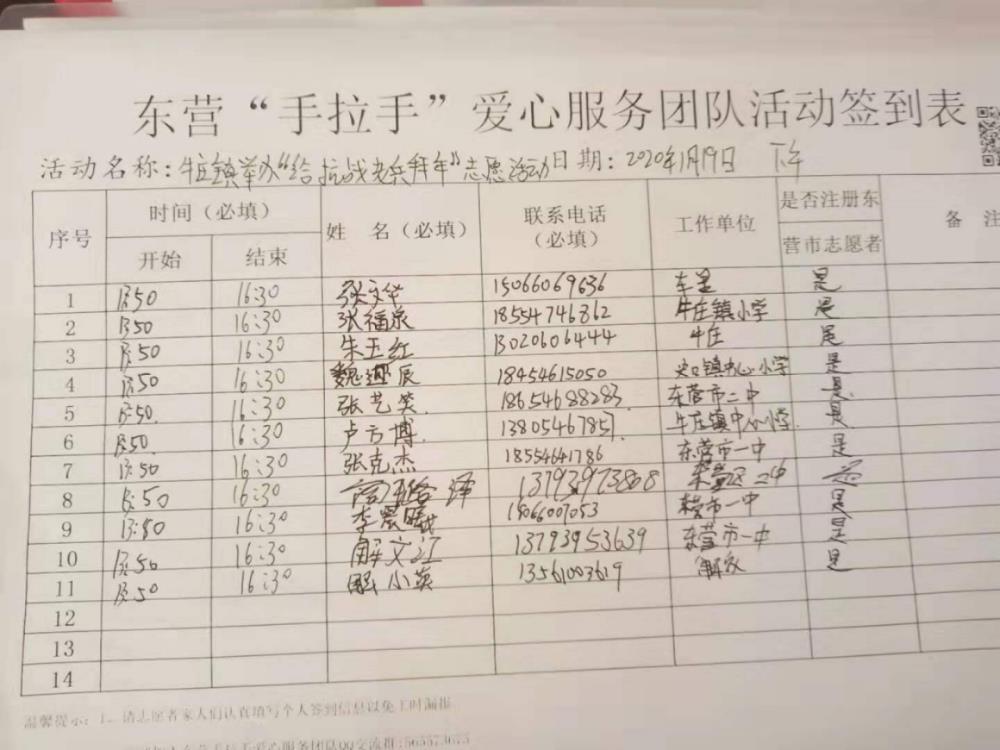 东营“手拉手”爱心服务团队活动签到表
活动名称：牛庄镇举办“给抗战老兵拜年”志愿活动日期：2020年1月19日 下午
序号 时间（必填） 姓 名（必填） 联系电话（必填） 工作单位 是否注册东营市志愿者 备 注
开始 结束
1 13:50 16:30 张文华 15066069636 是
2 13:50 16:30 张福泉 18554746862 牛庄镇小学 是
3 13:50 16:30 朱玉红 13020606444 牛庄 是
4 13:50 16:30 魏 辰 18454615050 史口镇中心小学 是
5 13:50 16:30 张艺笑 18654688283 东营市二中 是
6 13:50 16:30 卢方博 13805467857 牛庄镇中心小学 是
7 13:50 16:30 张克杰 18554641786 东营市一中 是
8 13:50 16:30 泽 13793973868 东营区二中
9 13:50 16:30 李晨曦 15066007053 东营市一中 是
10 13:50 16:30 解文江 13793953639 东营市一中 是
11 13:50 16:30 小英 13561003619 是
12
13
14
温馨提示：1、请志愿者家人们认真填写个人签到信息以免工时漏报
爱心服务团队QQ交流群: